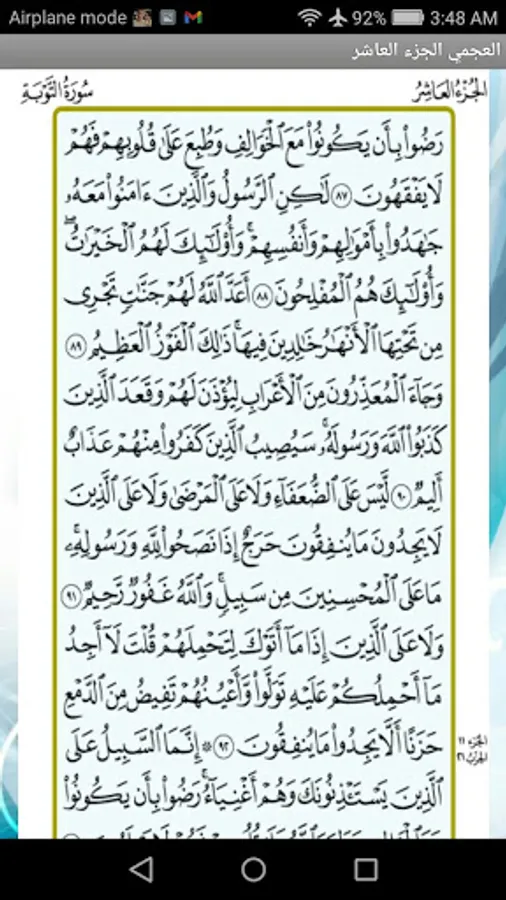 Airplane mode 92% 3:48 AM
العجمي الجزء العاشر
الجُزْءُ العَاشِرُ سُورَةُ التَّوْبَةِ
رَضُوا۟ بِأَن يَكُونُوا۟ مَعَ ٱلْخَوَالِفِ وَطُبِعَ عَلَىٰ قُلُوبِهِمْ فَهُمْ
لَا يَفْقَهُونَ ٨٧ لَٰكِنِ ٱلرَّسُولُ وَٱلَّذِينَ ءَامَنُوا۟ مَعَهُۥ
جَٰهَدُوا۟ بِأَمْوَٰلِهِمْ وَأَنفُسِهِمْ ۚ وَأُو۟لَٰٓئِكَ لَهُمُ ٱلْخَيْرَٰتُ ۖ
وَأُو۟لَٰٓئِكَ هُمُ ٱلْمُفْلِحُونَ ٨٨ أَعَدَّ ٱللَّهُ لَهُمْ جَنَّٰتٍ تَجْرِى
مِن تَحْتِهَا ٱلْأَنْهَٰرُ خَٰلِدِينَ فِيهَا ۚ ذَٰلِكَ ٱلْفَوْزُ ٱلْعَظِيمُ ٨٩
وَجَآءَ ٱلْمُعَذِّرُونَ مِنَ ٱلْأَعْرَابِ لِيُؤْذَنَ لَهُمْ وَقَعَدَ ٱلَّذِينَ
كَذَبُوا۟ ٱللَّهَ وَرَسُولَهُۥ ۚ سَيُصِيبُ ٱلَّذِينَ كَفَرُوا۟ مِنْهُمْ عَذَابٌ
أَلِيمٌ ٩٠ لَّيْسَ عَلَى ٱلضُّعَفَآءِ وَلَا عَلَى ٱلْمَرْضَىٰ وَلَا عَلَى ٱلَّذِينَ
لَا يَجِدُونَ مَا يُنفِقُونَ حَرَجٌ إِذَا نَصَحُوا۟ لِلَّهِ وَرَسُولِهِۦ ۚ
مَا عَلَى ٱلْمُحْسِنِينَ مِن سَبِيلٍ ۚ وَٱللَّهُ غَفُورٌ رَّحِيمٌ ٩١
وَلَا عَلَى ٱلَّذِينَ إِذَا مَآ أَتَوْكَ لِتَحْمِلَهُمْ قُلْتَ لَآ أَجِدُ
مَآ أَحْمِلُكُمْ عَلَيْهِ تَوَلَّوا۟ وَّأَعْيُنُهُمْ تَفِيضُ مِنَ ٱلدَّمْعِ
حَزَنًا أَلَّا يَجِدُوا۟ مَا يُنفِقُونَ ٩٢ ۞ إِنَّمَا ٱلسَّبِيلُ عَلَى
الجزء ١١
الحزب ٢١
ٱلَّذِينَ يَسْتَـْٔذِنُونَكَ وَهُمْ أَغْنِيَآءُ ۚ رَضُوا۟ بِأَن يَكُونُوا۟